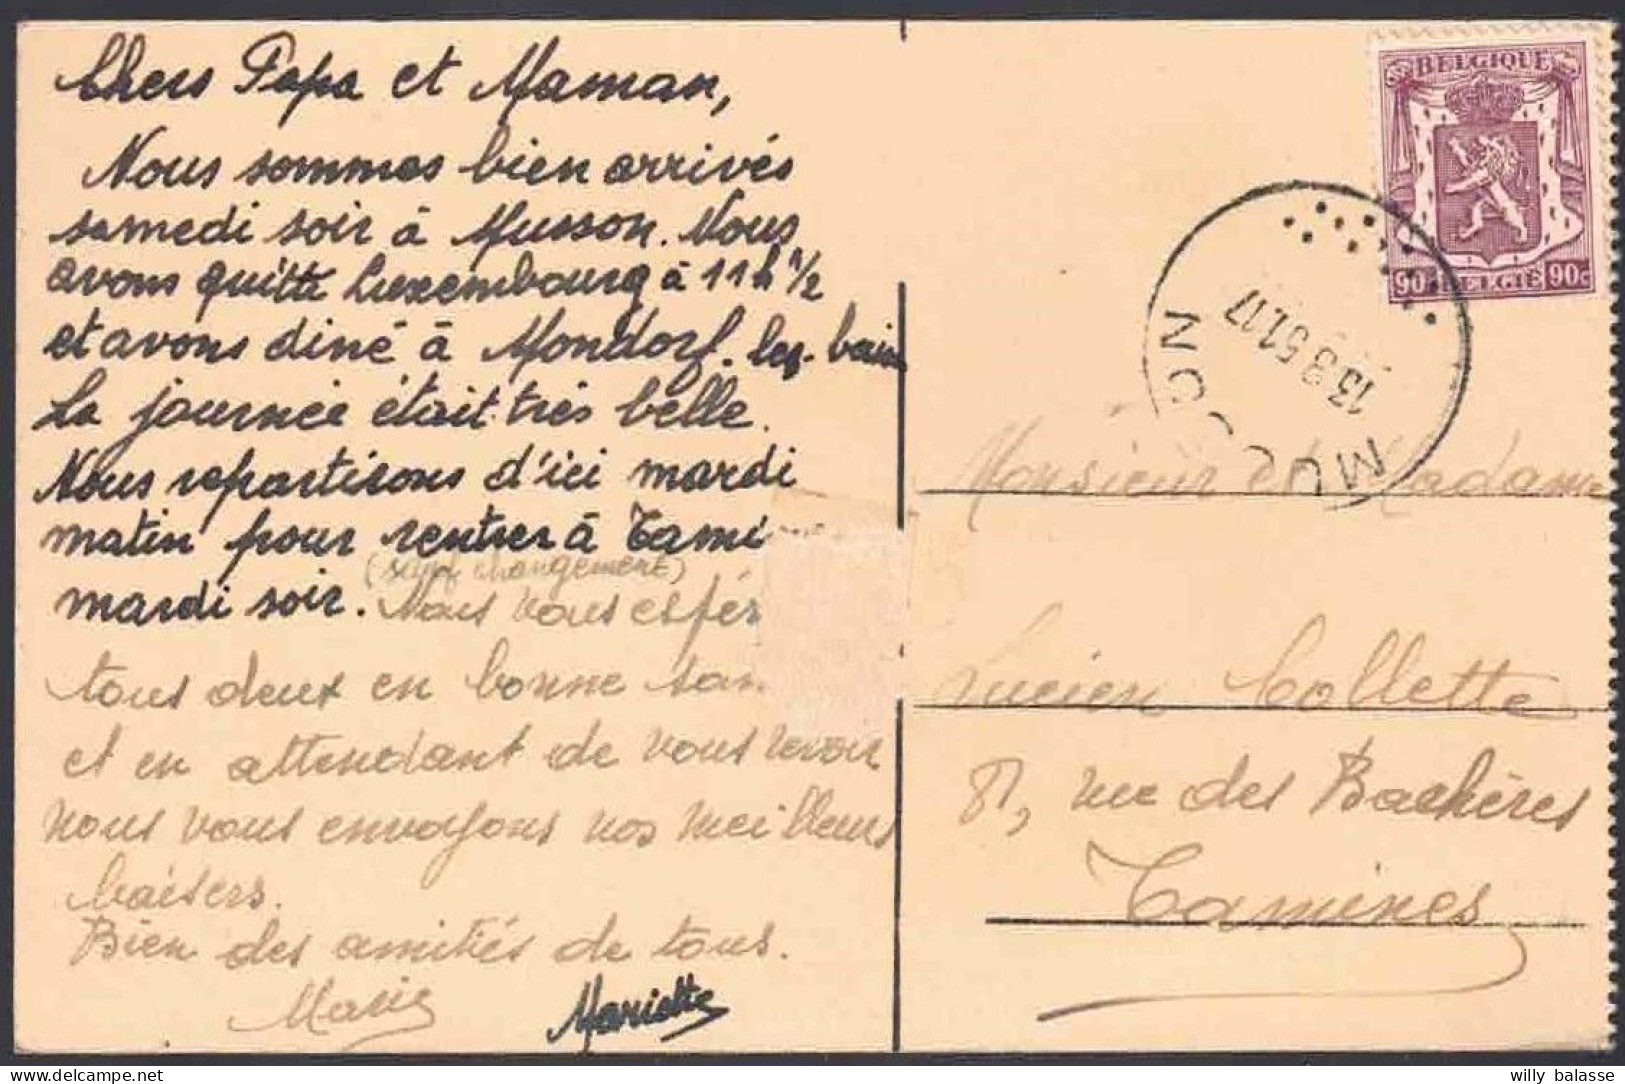 Chers Papa et Maman,
Nous sommes bien arrivés
samedi soir à Musson. Nous
avons quitté Luxembourg à 11h 1/2
et avons diné à Mondorf-les-bains
La journée était très belle.
Nous repartirons d'ici mardi
matin pour rentrer à Tami
(sauf changement)
mardi soir. Nous vous espér
tous deux en bonne san
et en attendant de vous revoir
nous vous envoyons nos meilleurs
baisers.
Bien des amitiés de tous.
Marie Mariette
BELGIQUE
90c BELGIË 90c
MUSSON
13.8.51.17
Monsieur et Madame
Lucien Collette
81, rue des Bachères
Tamines
willy balasse